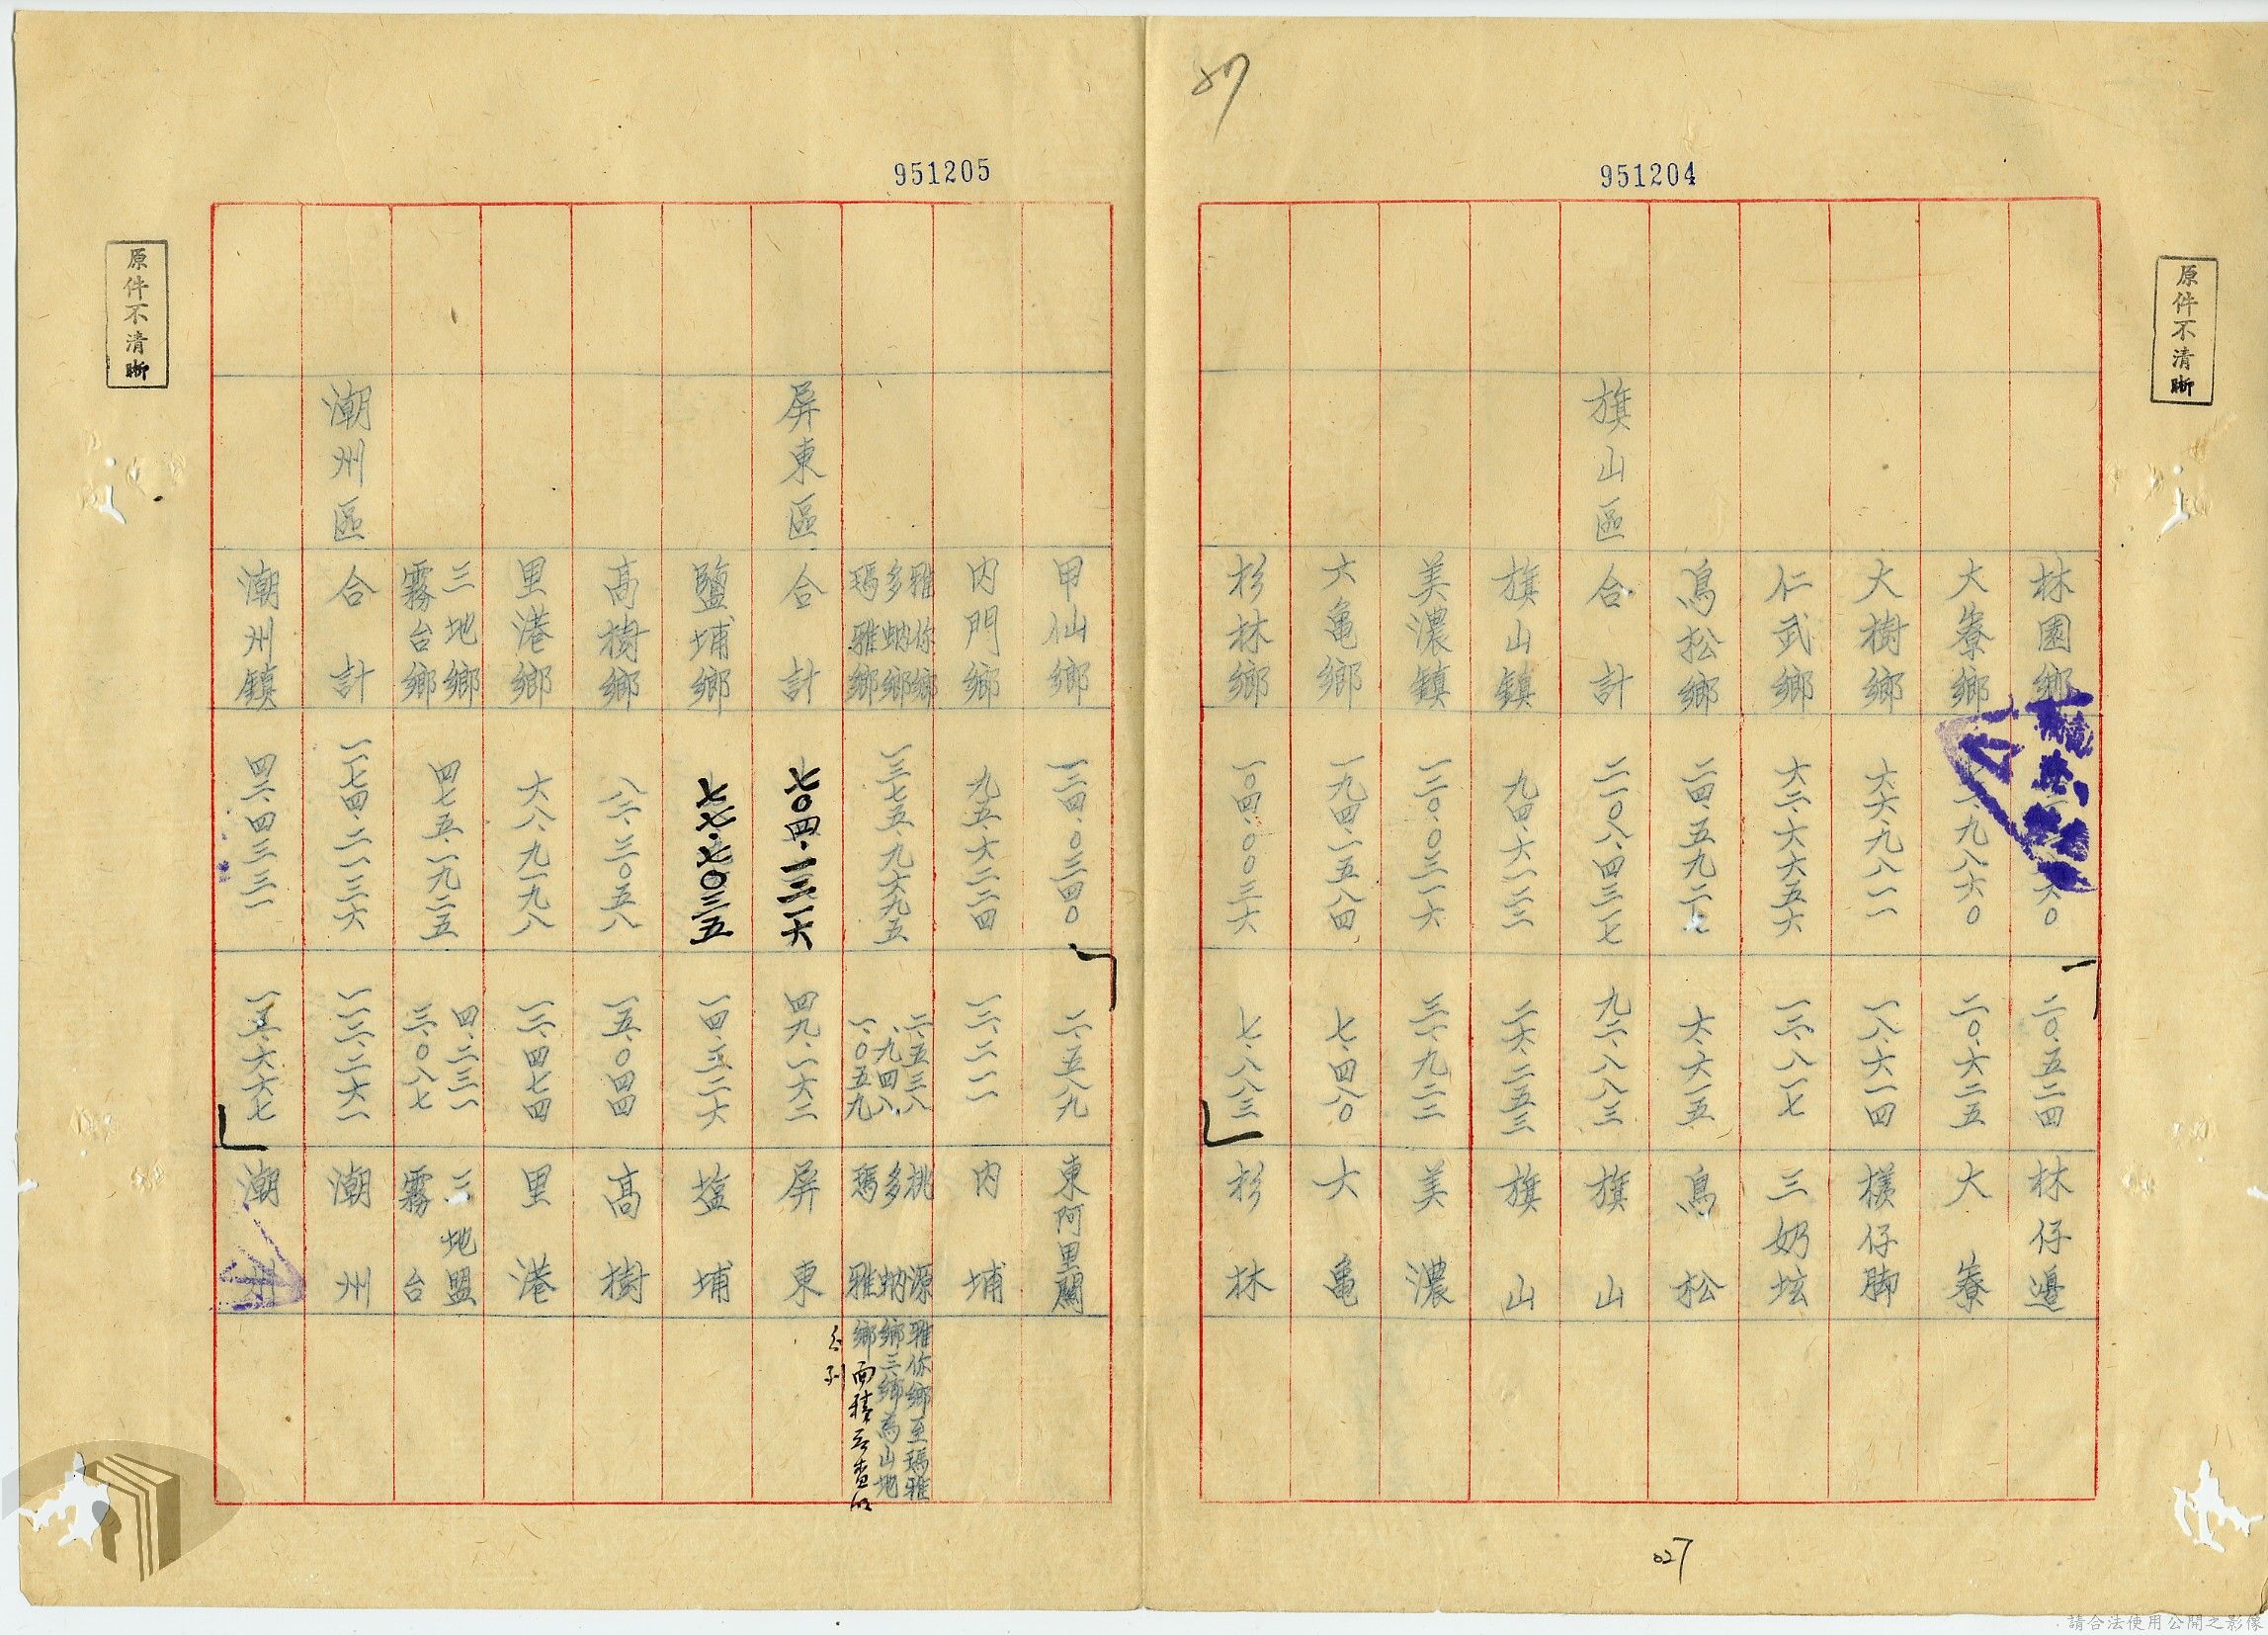 87
951204
原件不清晰
林園鄉 二〇.五二四 林仔邊
大寮鄉 二〇.六二五 大寮
大樹鄉 六六.九八一一 一八.六一四 檨仔脚
仁武鄉 六二.六六五六 一三.八一七 三奶坛
鳥松鄉 二四.五九二七 六.六一五 鳥松
旗山區 合計 二一〇八.四三一七 九二.八八三 旗山
旗山鎮 九四.六一二二 二六.二五三 旗山
美濃鎮 一二〇.〇三一六 三一.九二二 美濃
六亀鄉 一九四.一五八四 七.四八〇 六亀
杉林鄉 一〇四.〇〇三六 七.八八三 杉林
027
951205
甲仙鄉 一二四.〇三四〇 二.五八九 東阿里關
内門鄉 九五.六二二四 一二.二一一 内埔
雅你鄉 二.五三八 桃源
多蚋鄉 一.九四八 多蚋
瑪雅鄉 一.〇五九 瑪雅
一三七五.九六九五
雅你鄉至瑪雅
鄉三鄉為山地
鄉面積云查以
屏東區 合計 七〇四.一三一六 四九一六二 屏東
鹽埔鄉 七七.七〇三五 一四.三二六 塩埔
高樹鄉 八三.三〇五八 一五.〇四四 高樹
里港鄉 六八.九一九八 一三.四七四 里港
三地鄉 四.二三一 三地盟
霧台鄉 三.〇八七 霧台
四七五.一九二五
潮州區 合計 一一七四.二一三六 一一三.二六一 潮州
潮州鎮 四二.四三三一 一五.六六七 潮州
原件不清晰
請合法使用公開之影像